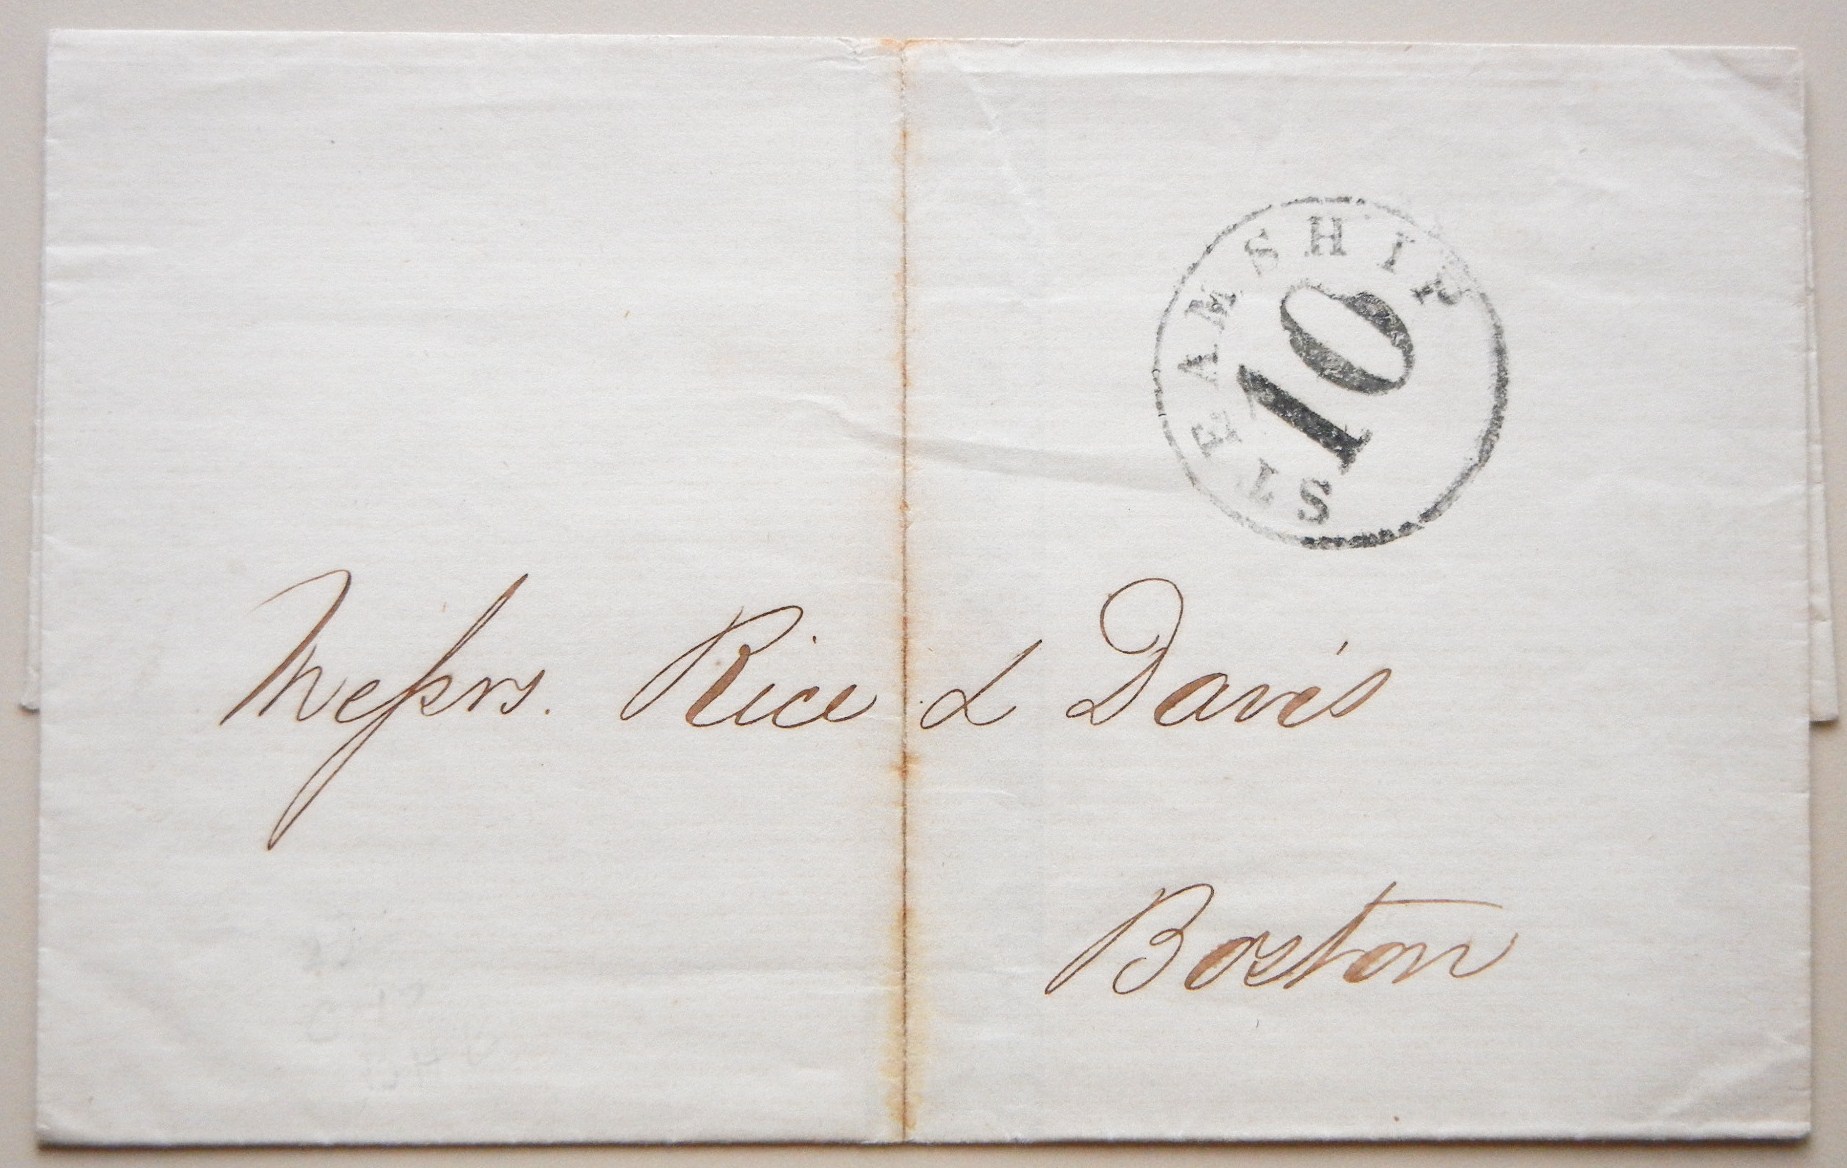 STEAMSHIP
10
Messrs. Rice & Davis
Boston